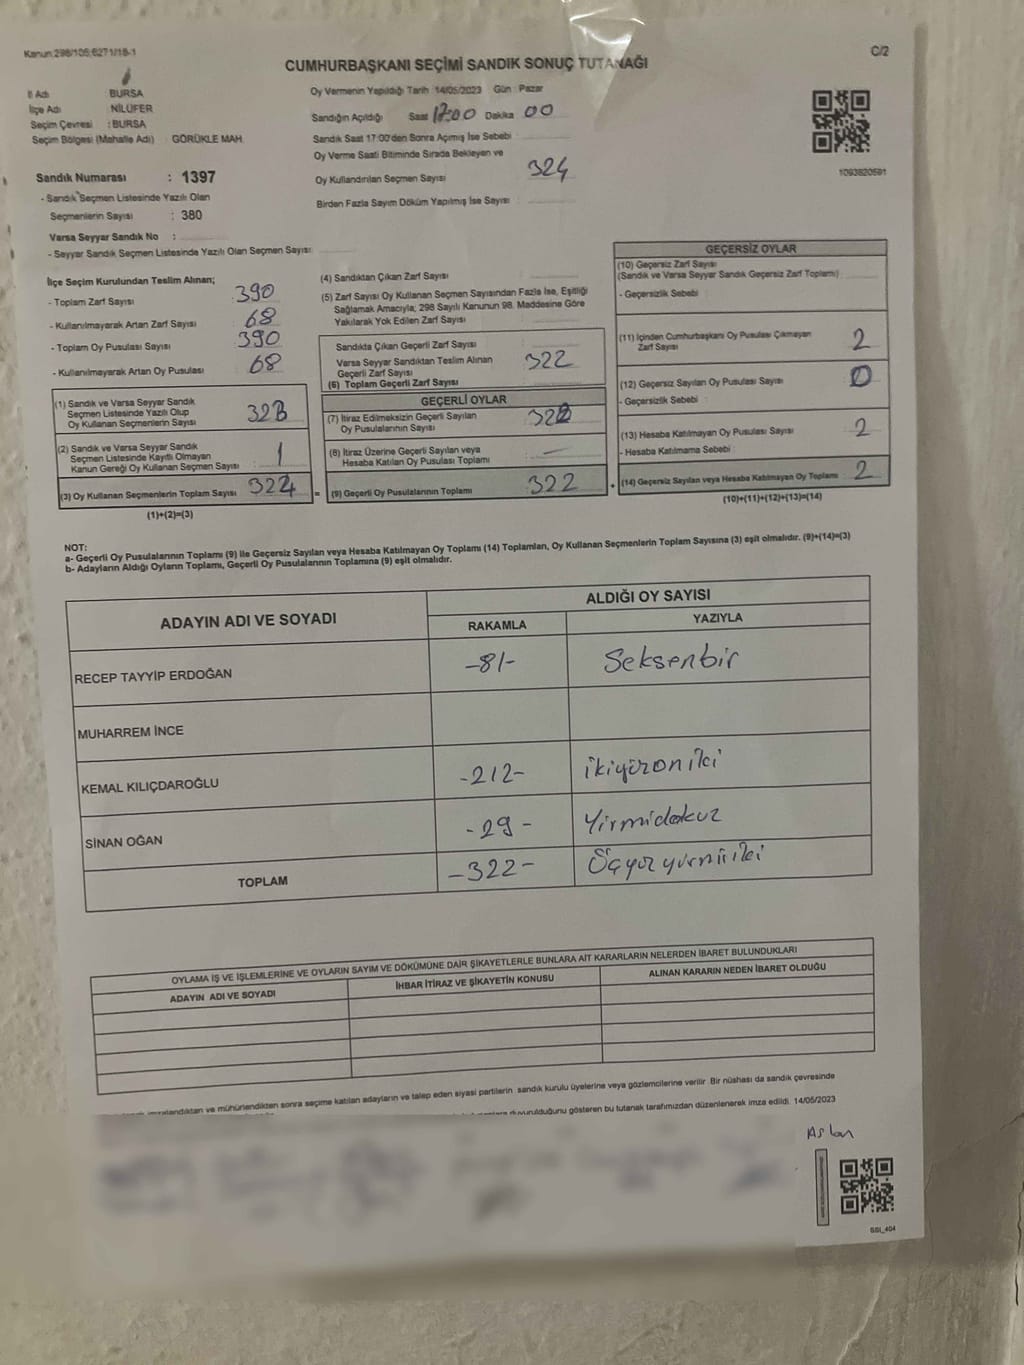 Kanun:298/105;6271/18-1
C/2
CUMHURBAŞKANI SEÇİMİ SANDIK SONUÇ TUTANAĞI
İl Adı : BURSA
İlçe Adı : NİLÜFER
Seçim Çevresi : BURSA
Seçim Bölgesi (Mahalle Adı) : GÖRÜKLE MAH.
Sandık Numarası : 1397
- Sandık Seçmen Listesinde Yazılı Olan
Seçmenlerin Sayısı : 380
Varsa Seyyar Sandık No :
- Seyyar Sandık Seçmen Listesinde Yazılı Olan Seçmen Sayısı:
Oy Vermenin Yapıldığı Tarih : 14/05/2023 Gün : Pazar
Sandığın Açıldığı Saat 17:00 Dakika 00
Sandık Saat 17:00'den Sonra Açımış İse Sebebi :
Oy Verme Saati Bitiminde Sırada Bekleyen ve
Oy Kullandırılan Seçmen Sayısı : 324
Birden Fazla Sayım Döküm Yapılmış İse Sayısı :
1093820591
İlçe Seçim Kurulundan Teslim Alınan;
- Toplam Zarf Sayısı : 390
- Kullanılmayarak Artan Zarf Sayısı : 68
- Toplam Oy Pusulası Sayısı : 390
- Kullanılmayarak Artan Oy Pusulası : 68
(1) Sandık ve Varsa Seyyar Sandık
Seçmen Listesinde Yazılı Olup
Oy Kullanan Seçmenlerin Sayısı : 323
(2) Sandık ve Varsa Seyyar Sandık
Seçmen Listesinde Kayıtlı Olmayan
Kanun Gereği Oy Kullanan Seçmen Sayısı : 1
(3) Oy Kullanan Seçmenlerin Toplam Sayısı : 324
(1)+(2)=(3)
(4) Sandıktan Çıkan Zarf Sayısı :
(5) Zarf Sayısı Oy Kullanan Seçmen Sayısından Fazla İse, Eşitliği
Sağlamak Amacıyla; 298 Sayılı Kanunun 98. Maddesine Göre
Yakılarak Yok Edilen Zarf Sayısı :
Sandıkta Çıkan Geçerli Zarf Sayısı :
Varsa Seyyar Sandıktan Teslim Alınan
Geçerli Zarf Sayısı : 322
(6) Toplam Geçerli Zarf Sayısı :
GEÇERLİ OYLAR
(7) İtiraz Edilmeksizin Geçerli Sayılan
Oy Pusulalarının Sayısı : 322
(8) İtiraz Üzerine Geçerli Sayılan veya
Hesaba Katılan Oy Pusulası Toplamı : —
= (9) Geçerli Oy Pusulalarının Toplamı : 322
GEÇERSİZ OYLAR
(10) Geçersiz Zarf Sayısı
(Sandık ve Varsa Seyyar Sandık Geçersiz Zarf Toplamı)
- Geçersizlik Sebebi :
(11) İçinden Cumhurbaşkanı Oy Pusulası Çıkmayan
Zarf Sayısı : 2
(12) Geçersiz Sayılan Oy Pusulası Sayısı : 0
- Geçersizlik Sebebi :
(13) Hesaba Katılmayan Oy Pusulası Sayısı : 2
- Hesaba Katılmama Sebebi :
+ (14) Geçersiz Sayılan veya Hesaba Katılmayan Oy Toplamı : 2
(10)+(11)+(12)+(13)=(14)
NOT:
a- Geçerli Oy Pusulalarının Toplamı (9) ile Geçersiz Sayılan veya Hesaba Katılmayan Oy Toplamı (14) Toplamları, Oy Kullanan Seçmenlerin Toplam Sayısına (3) eşit olmalıdır. (9)+(14)=(3)
b- Adayların Aldığı Oyların Toplamı, Geçerli Oy Pusulalarının Toplamına (9) eşit olmalıdır.
ADAYIN ADI VE SOYADI
ALDIĞI OY SAYISI
RAKAMLA YAZIYLA
RECEP TAYYİP ERDOĞAN -81- Seksenbir
MUHARREM İNCE
KEMAL KILIÇDAROĞLU -212- ikiyüzoniki
SİNAN OĞAN -29- Yirmidokuz
TOPLAM -322- Üçyüzyirmiiki
OYLAMA İŞ VE İŞLEMLERİNE VE OYLARIN SAYIM VE DÖKÜMÜNE DAİR ŞİKAYETLERLE BUNLARA AİT KARARLARIN NELERDEN İBARET BULUNDUKLARI
ADAYIN ADI VE SOYADI İHBAR İTİRAZ VE ŞİKAYETİN KONUSU ALINAN KARARIN NEDEN İBARET OLDUĞU
imzalandıktan ve mühürlendikten sonra seçime katılan adayların ve talep eden siyasi partilerin sandık kurulu üyelerine veya gözlemcilerine verilir. Bir nüshası da sandık çevresinde
duyurulduğunu gösteren bu tutanak tarafımızdan düzenlenerek imza edildi. 14/05/2023
Aslan
SSI_404